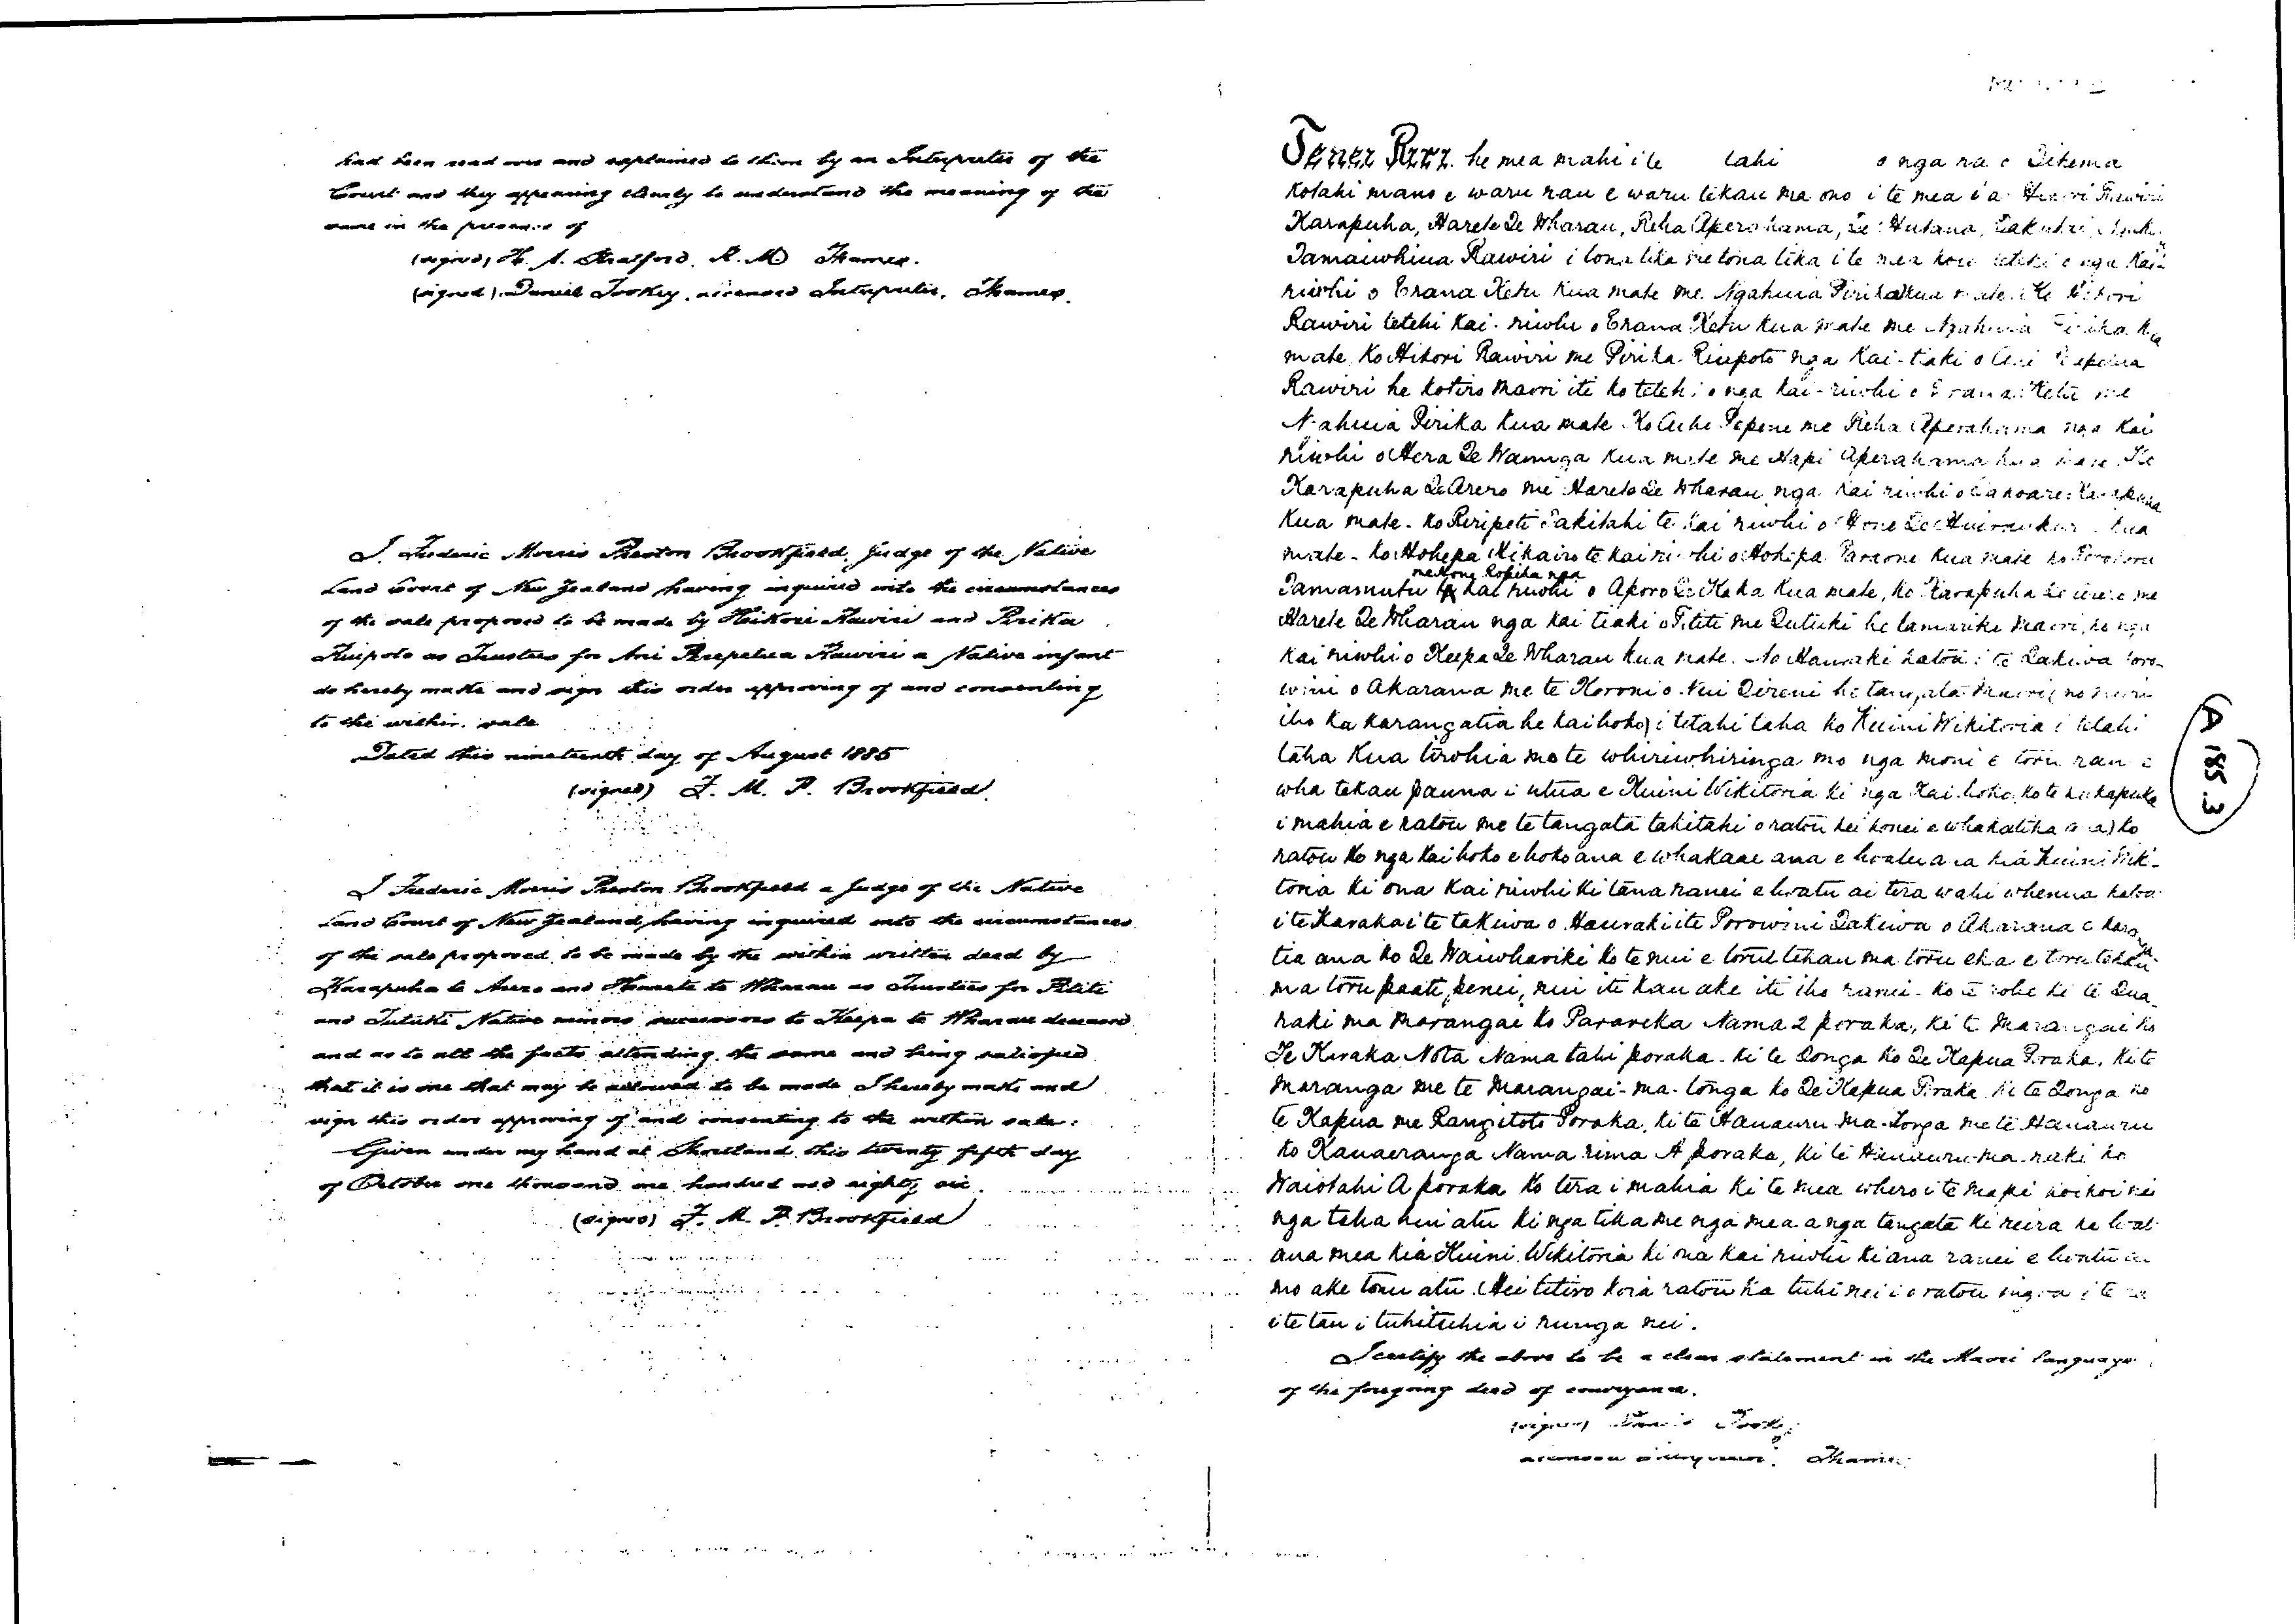 had been read over and explained to them by an Interpreter of the
Court and they appearing clearly to understand the meaning of the
same in the presence of
(signed) H. A. Stratford. R.M. Thames.
(signed) Daniel Tookey. Licensed Interpreter, Thames.
I, Frederic Morris Preston Brookfield, Judge of the Native
Land Court of New Zealand having inquired into the circumstances
of the sale proposed to be made by Heikori Rawiri and Pirika
Ruipoto as Trustees for Ani Perepetua Rawiri a Native infant
do hereby make and sign this order approving of and consenting
to the within sale
Dated this nineteenth day of August 1885
(signed) F. M. P. Brookfield.
I Frederic Morris Preston Brookfield a Judge of the Native
Land Court of New Zealand, having inquired into the circumstances
of the sale proposed to be made by the within written deed by
Karapuha te Arero and Harete te Wharau as Trustees for Titi
and Tutuki Native minors successors to Keepa te Wharau deceased
and as to all the facts attending the same and being satisfied
that it is one that may be allowed to be made I hereby make and
sign this order approving of and consenting to the within sale.
Given under my hand at Shortland this twenty fifth day
of October one thousand one hundred and eighty six.
(signed) F. M. P. Brookfield
he mea mahi i te tahi o nga ra o Tihema
Kotahi mano e waru rau e waru tekau ma ono i te mea i a Rawiri
Karapuha, Harete Te Wharau, Reha Aperahama, Te Hutana,
Tamaiwhiua Rawiri i tona tika me tona tika i te mea hoki tetehi o nga Kai-
riiwhi o Erana Ketu kua mate me Ngahuia Pirika kua mate.
Rawiri tetehi kai-riiwhi o Erana Ketu kua mate me Ngahuia Pirika kua
mate. Ko Hikori Rawiri me Pirika Ruipoto nga Kai-tiaki o Ani
Rawiri he kotiro Maori iti ko tetehi o nga kai-riiwhi o Erana Ketu me
Nahuia Pirika kua mate. Ko Pepene me Reha Aperahama nga Kai
riiwhi o Hera Te Waunga kua mate me Hapi Aperahama kua mate. Ko
Karapuha Te Arero me Harete Te Wharau nga kai riiwhi o
kua mate. Ko Riripeti Takitahi te kai riiwhi o Hone Te kua
mate. Ko Hohepa Hikairo te kai riiwhi o Hohepa Paraone kua mate ko
me Hone Ropiha nga
Tamamutu kai riiwhi o Aporo Te Kaka kua mate, ko Karapuha Te Arero me
Harete Te Wharau nga kai tiaki o Titi me Tutuki he tamariki Maori, ko nga
kai riiwhi o Keepa Te Wharau kua mate. No Hauraki ratou i te Takiwa Poro-
wini o Akarana me te Koroni o Nui Tireni he tangata Maori (no muri
iho ka karangatia he kaihoko) i tetahi taha ko Kuini Wikitoria i tetahi
taha Kua tirohia mo te whiriwhiringa mo nga moni e toru rau e
wha tekau pauna i utua e Kuini Wikitoria ki nga Kai hoko, ko te pukapuka
i mahia e ratou me te tangata takitahi o ratou kei konei e whakatika ana) ko
ratou ko nga kaihoko e hoko ana e whakaae ana e hoatu ana kia Kuini Wiki-
toria ki ona kai riiwhi ki tana ranei e hoatu ai tera wahi whenua katoa
i te Karaka i te takiwa o Hauraki i te Porowini Takiwa o Akarana e karanga
tia ana ko Te Waiwhariki ko te nui e toru tekau ma toru eka e toru tekau
ma toru paati, penei, nui ite kau ake iti iho ranei. Ko te rohe ki te Tua-
raki ma Marangai ko Parareka Nama 2 poraka, ki te Marangai ko
Te Karaka Nota Nama tahi poraka. ki te Tonga ko Te Kapua Poraka, ki te
Maranga me te Marangai-ma-tonga ko Te Kapua Poraka ki te Tonga ko
te Kapua me Rangitoto Poraka, ki te Hauauru ma-tonga me te Hauauru
ko Kauaeranga Nama rima A poraka, ki te Hauauru-ma-raki ko
Waiotahi A poraka ko tera i mahia ki te mea whero i te mapi hoki nei
nga taha hui atu ki nga tika me nga mea a nga tangata ki reira ka hoatu
ana mea kia Kuini Wikitoria ki ona kai riiwhi ki ana ranei e hoatu ai
mo ake tonu atu. Hei titiro koia ratou ka tuhi nei i o ratou ingoa i te ra
i te tau i tuhituhia i runga nei.
I certify the above to be a clear statement in the Maori language
of the foregoing deed of conveyance.
(signed) Daniel Tookey
Licensed Interpreter. Thames.
A 185.3